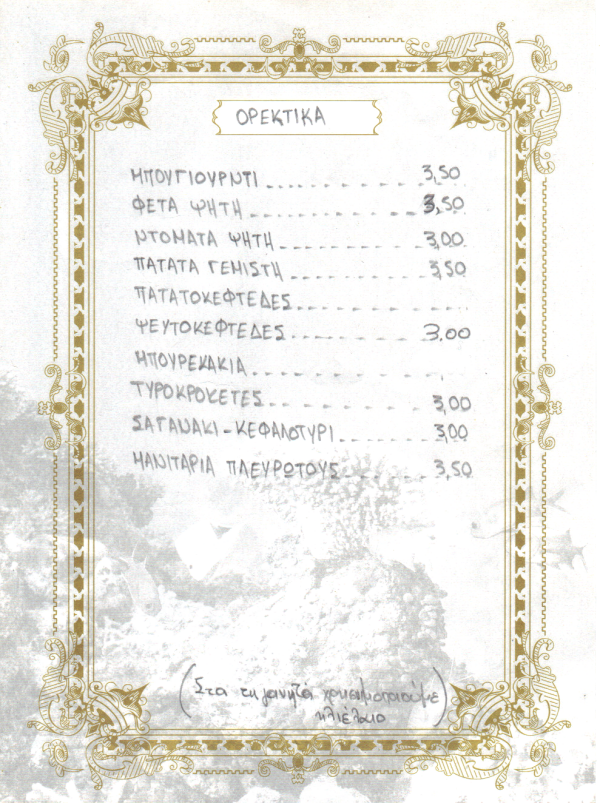 ΟΡΕΚΤΙΚΑ
ΜΠΟΥΓΙΟΥΡΝΤΙ 3,50
ΦΕΤΑ ΨΗΤΗ 3,50
ΝΤΟΜΑΤΑ ΨΗΤΗ 3,00
ΠΑΤΑΤΑ ΓΕΜΙΣΤΗ 3,50
ΠΑΤΑΤΟΚΕΦΤΕΔΕΣ
ΨΕΥΤΟΚΕΦΤΕΔΕΣ 3.00
ΜΠΟΥΡΕΚΑΚΙΑ
ΤΥΡΟΚΡΟΚΕΤΕΣ 3,00
ΣΑΓΑΝΑΚΙ-ΚΕΦΑΛΟΤΥΡΙ 3,00
ΜΑΝΙΤΑΡΙΑ ΠΛΕΥΡΩΤΟΥΣ 3,50
(Στα τηγανητά χρησιμοποιούμε
ηλιέλαιο)